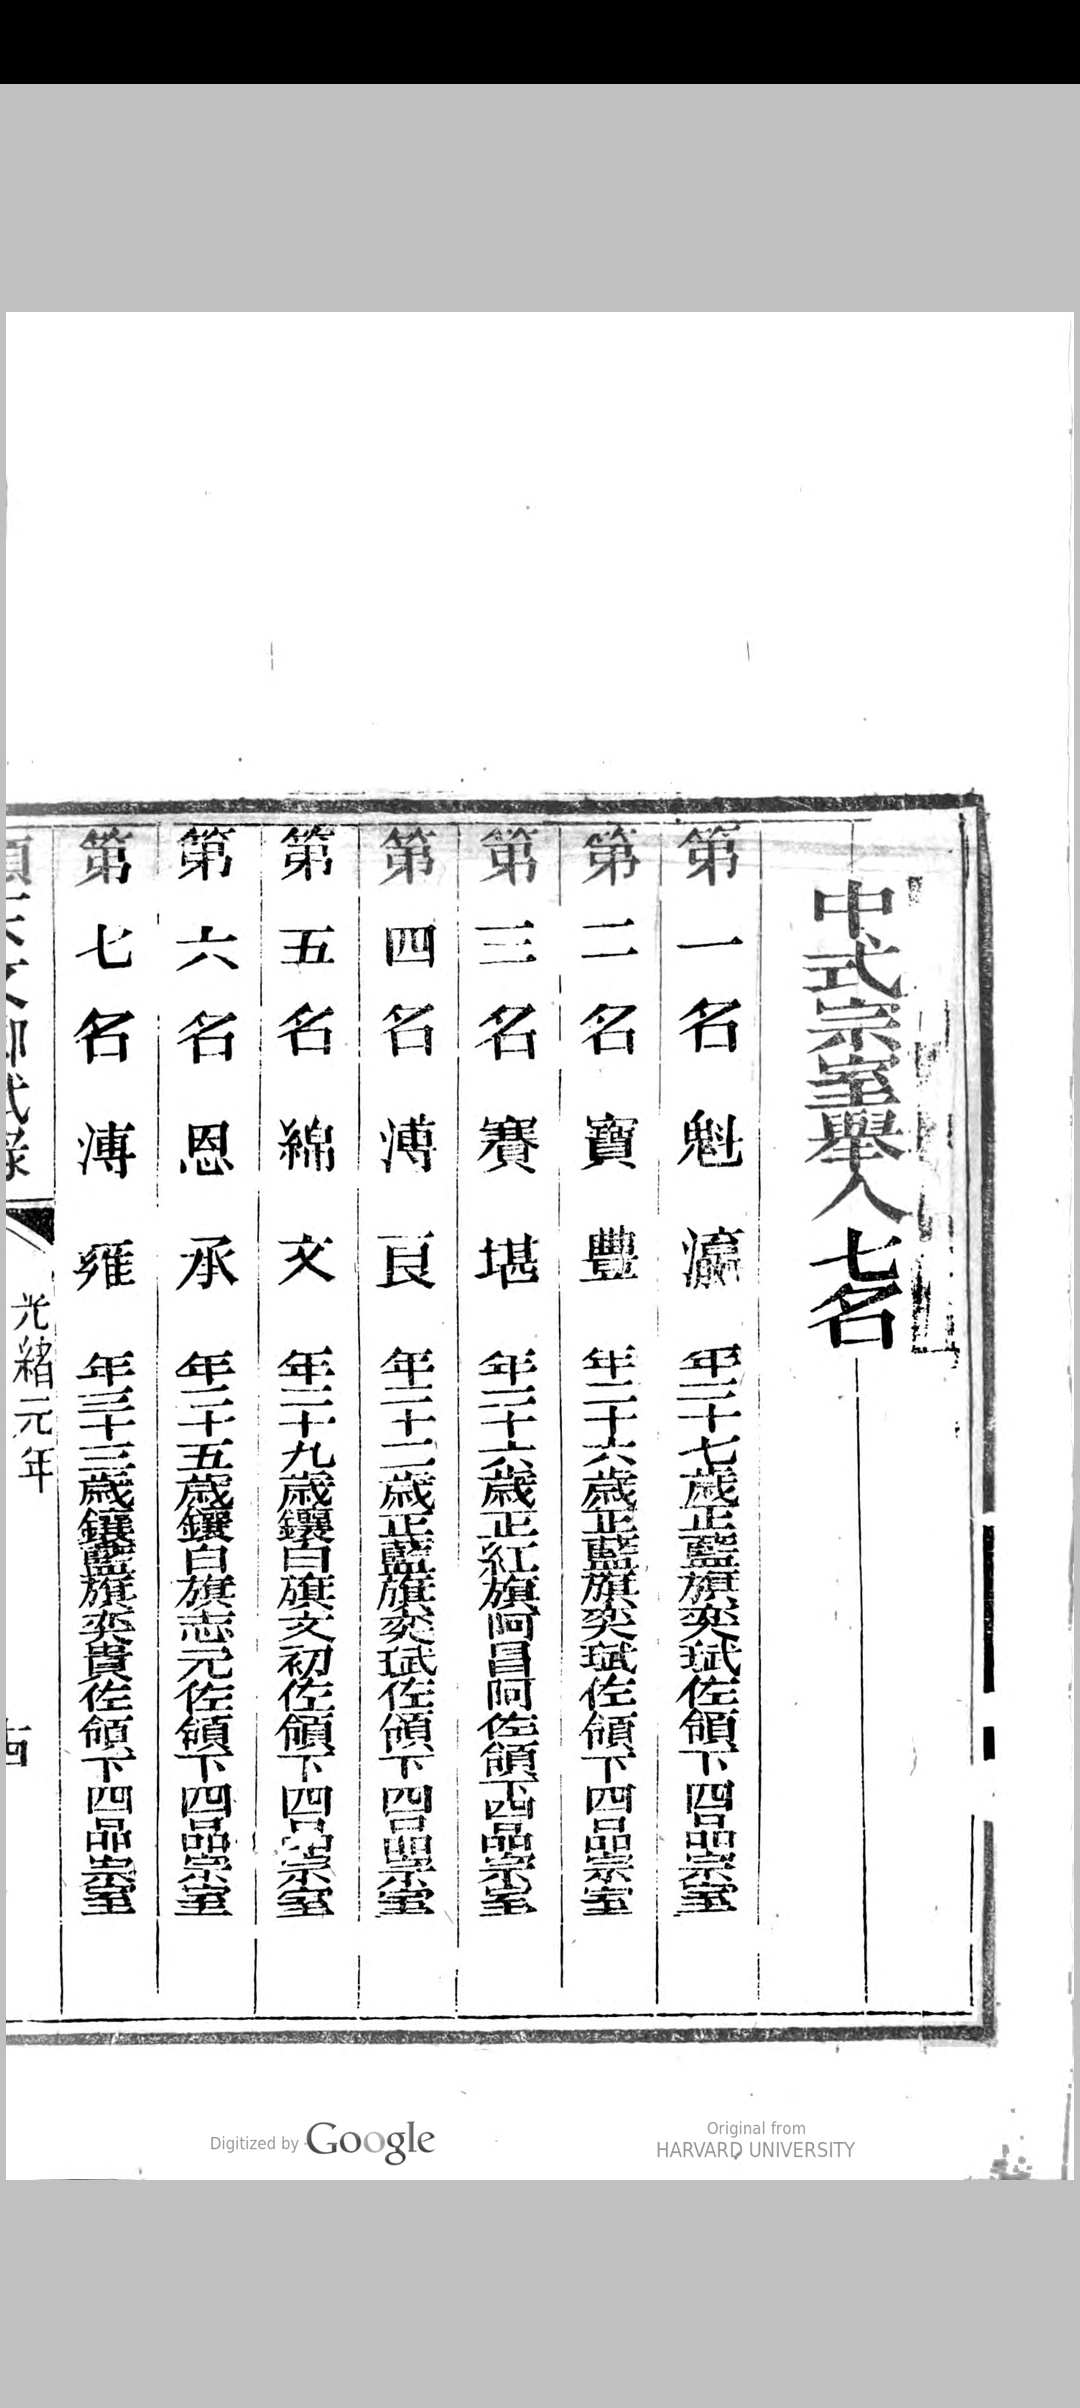 中式宗室舉人七名
第一名 魁瀛 年二十七歲正藍旗奕斌佐領下四品宗室
第二名 寶豐 年二十六歲正藍旗奕斌佐領下四品宗室
第三名 賽堪 年二十六歲正紅旗阿昌阿佐領下四品宗室
第四名 溥良 年二十二歲正藍旗奕斌佐領下四品宗室
第五名 綿文 年二十九歲鑲白旗文初佐領下四品宗室
第六名 恩承 年二十五歲鑲白旗志元佐領下四品宗室
第七名 溥雍 年三十三歲鑲藍旗奕貴佐領下四品宗室
光緒元年
Digitized by Google
Original from
HARVARD UNIVERSITY